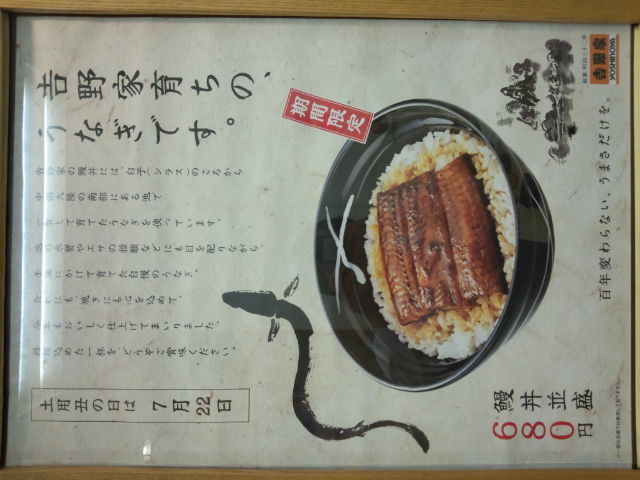 吉野家
YOSHINOYA
創業 明治三十二年
百年変わらない、うまさだけを。
期間限定
吉野家育ちの、
うなぎです。
吉野家の鰻丼には、白子(シラス)のころから
中国大陸の南部にある池で
一貫して育てたうなぎを使っています。
池の水質やエサの種類などにも目を配りながら、
手塩にかけて育てた自慢のうなぎ。
たれにも、焼きにも心を込めて、
今年もおいしく仕上げてまいりました。
丹精込めた一杯を、どうぞご賞味ください。
土用丑の日は 7月22日
鰻丼並盛
680円